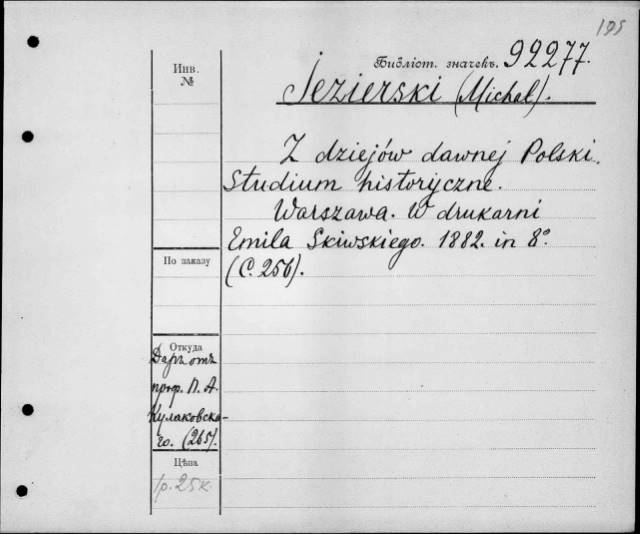 195
Библіот. значекъ. 92277.
Инв.
№
Jezierski (Michał).
Z dziejów dawnej Polski.
Studium historyczne.
Warszawa. W drukarni
Emila Skiwskiego. 1882. in 8°.
(С. 256).
По заказу
Откуда
Даръ отъ
проф. П. А.
Кулаковска-
го. (265).
Цѣна
1р. 25 к.